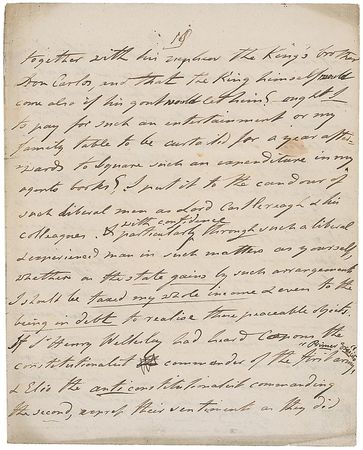 18
together with his nephew the King's brother
Don Carlos, and that the King himself would
come also if his gout would let him? ought I
to pay for such an entertainment or my
family table to be curtailed for a year after-
wards to square such an expenditure in my
agents books? I put it to the candour of
such liberal men as Lord Castlereagh & his
colleagues. & with confidence particularly through such a liberal
& experienced man in such matters as yourself,
whether as the state gains by such arrangements
I should be taxed my whole income & even to the
being in debt to realise those peaceable objects.
If Sr Henry Wellesley had heard Campana the
constitutionalist commander of the first army
& Elio the anticonstitutionalist commanding
the second, express their sentiments as they did